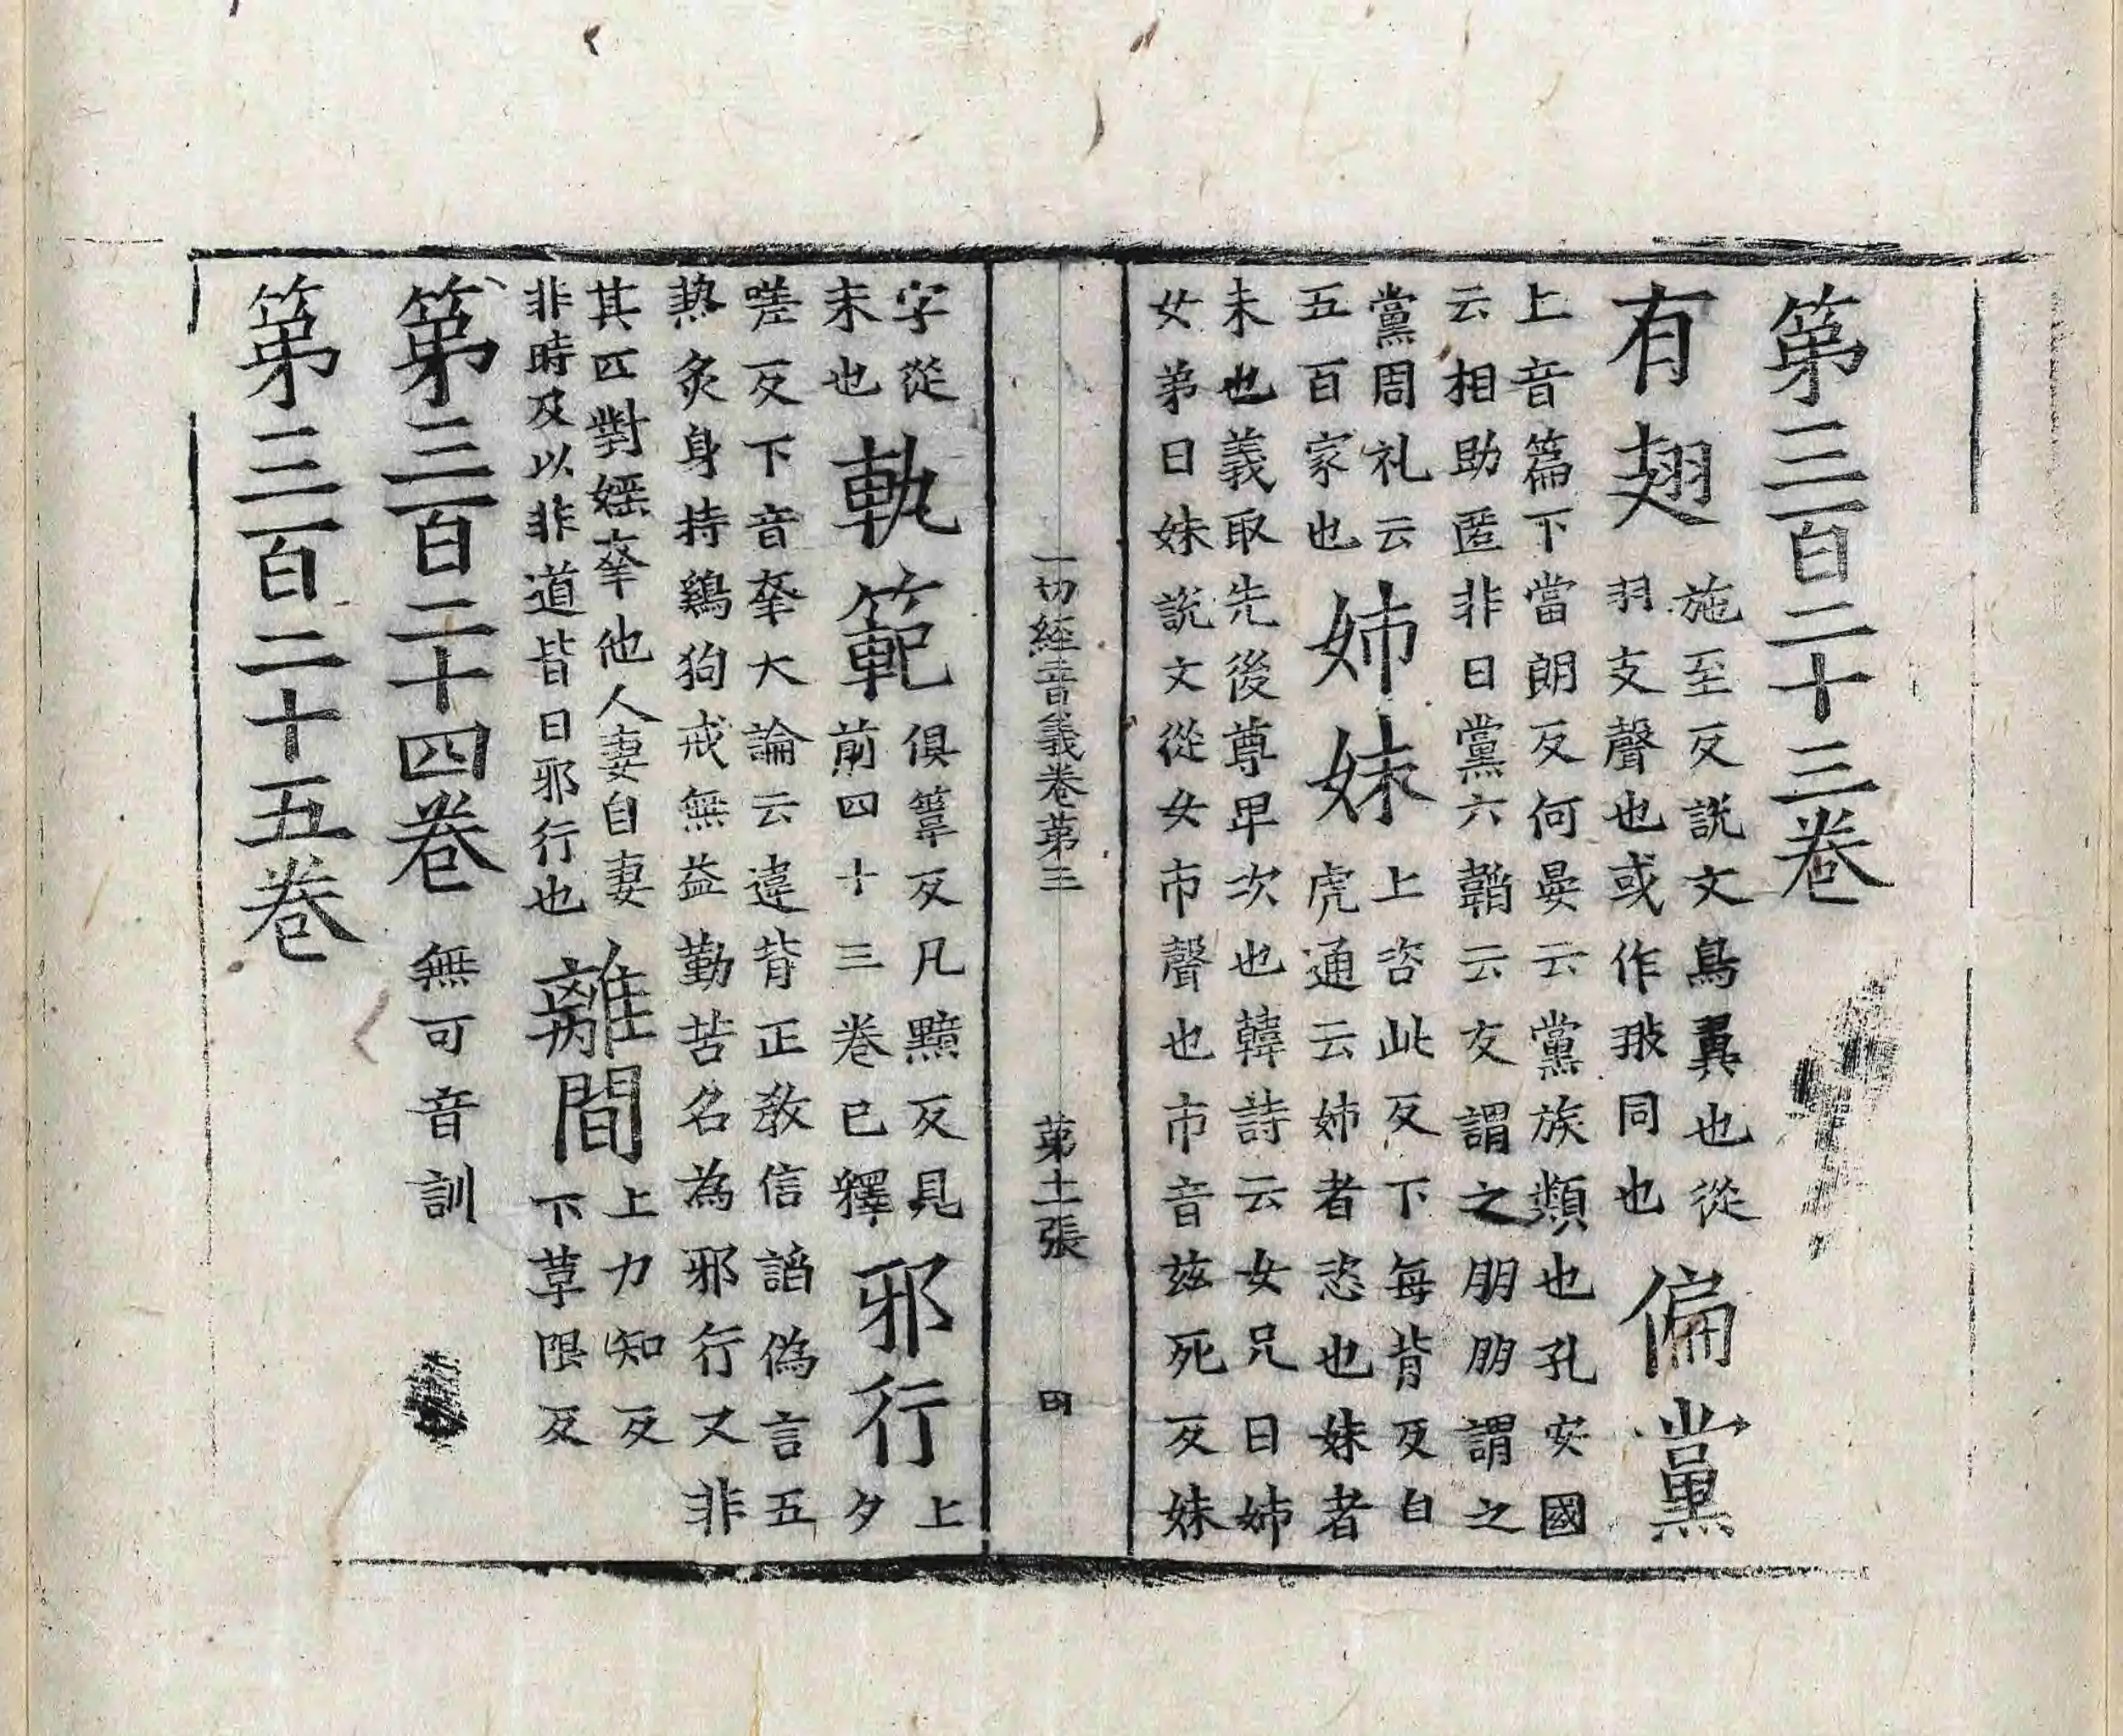 第三百二十三卷
有翅 施至反說文鳥翼也從
羽支聲也或作翍同也 偏黨
上音篇下當朗反何晏云黨族類也孔安國
云相助匿非曰黨六韜云友謂之朋朋謂之
黨周礼云
五百家也 姉妹 上咨此反下每背反白
虎通云姉者恣也妹者
未也義取先後尊卑次也韓詩云女兄曰姉
女弟曰妹說文從女巿聲也巿音兹死反妹
一切經音義卷第三 第十二張
字從
未也 軌範 俱葦反凡黯反具
前四十三卷已釋 邪行 上
夕
嗟反下音㚔大論云違背正教信謟偽言五
熱炙身持鷄狗戒無益勤苦名為邪行又非
其匹對婬㚔他人妻自妻
非時及以非道皆曰邪行也 離間 上力知反
下草限反
第三百二十四卷 無可音訓
第三百二十五卷